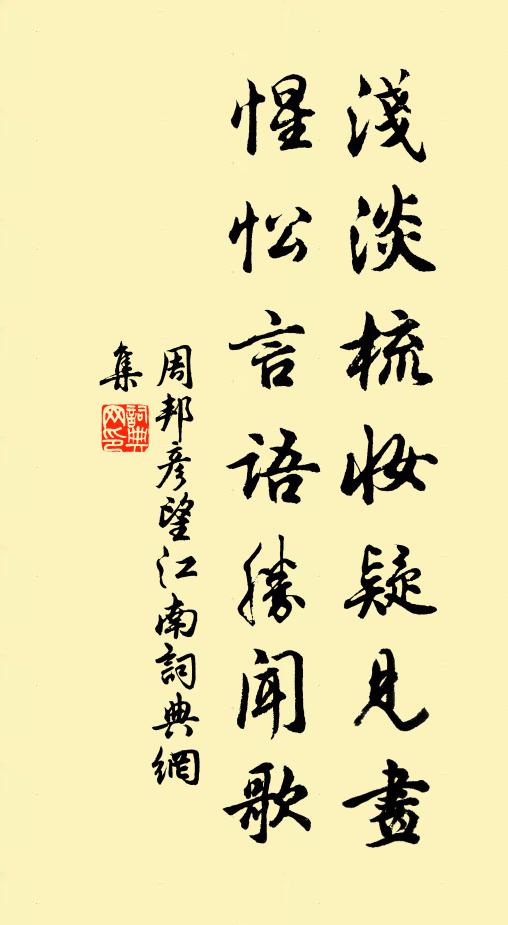 淺淡梳妝疑見畫
惺忪言語勝聞歌
周邦彥望江南詞典網
集
詞典网印